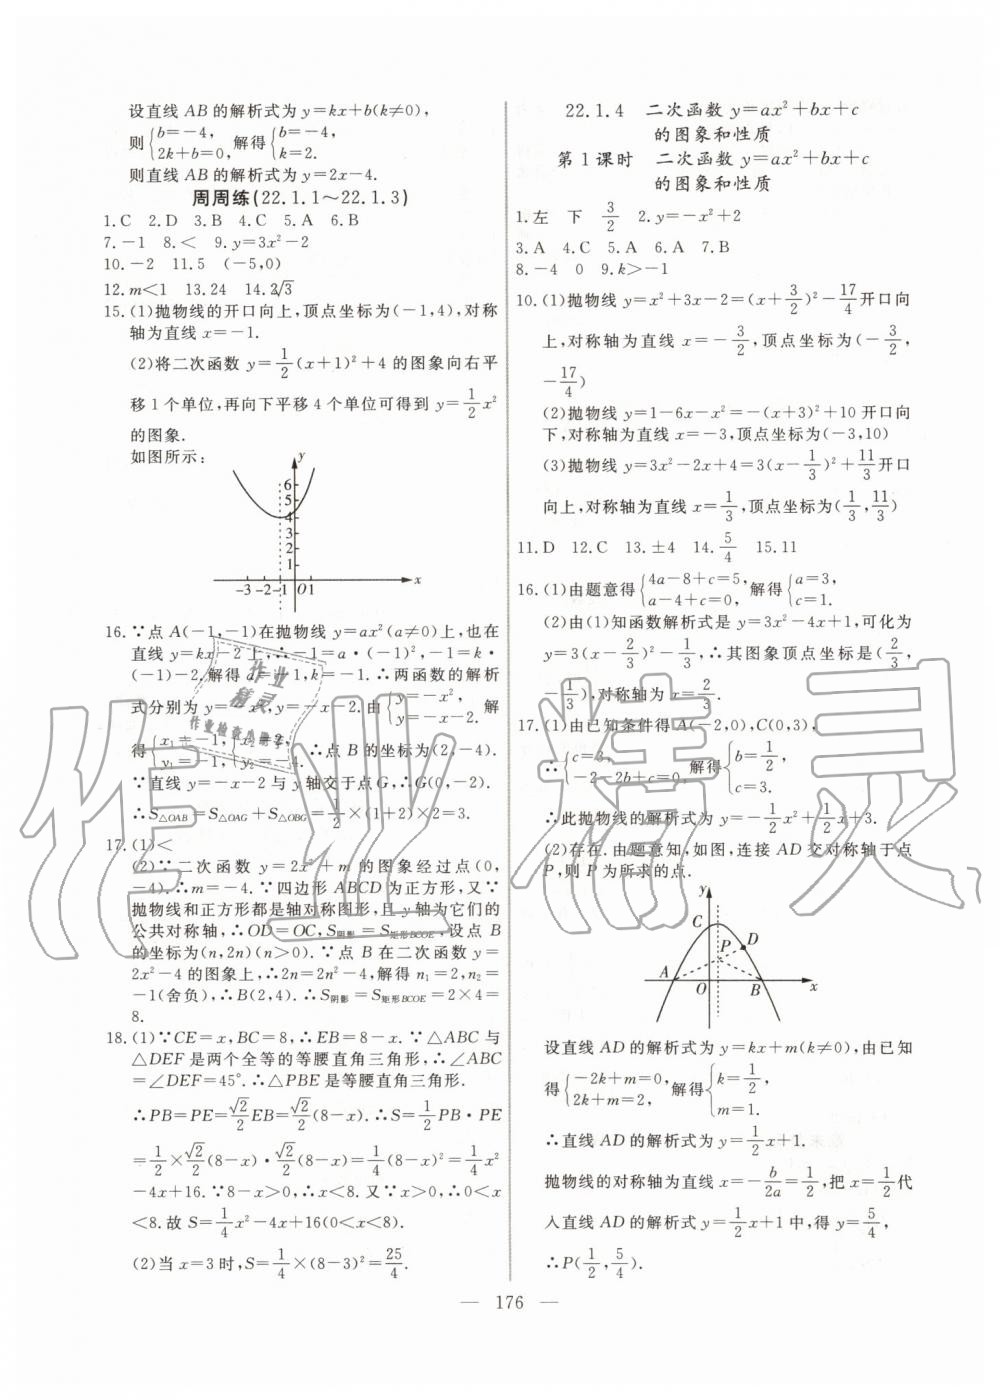 设直线 AB 的解析式为 y=kx+b(k≠0),
则{b=-4, 2k+b=0, 解得{b=-4, k=2.
则直线 AB 的解析式为 y=2x-4.
周周练(22.1.1~22.1.3)
1.C 2.D 3.B 4.C 5.A 6.B
7.-1 8.< 9.y=3x²-2
10.-2 11.5 (-5,0)
12.m<1 13.24 14.2√3
15.(1)抛物线的开口向上,顶点坐标为(-1,4),对称
轴为直线 x=-1.
(2)将二次函数 y=1/2(x+1)²+4 的图象向右平
移1个单位,再向下平移4个单位可得到 y=1/2x²
的图象.
如图所示:
y
6
5
4
3
2
1
-3 -2 -1 O 1 x
16.∵点 A(-1,-1)在抛物线 y=ax²(a≠0)上,也在
直线 y=kx-2 上,∴-1=a·(-1)²,-1=k·
(-1)-2,解得 a=-1,k=-1.∴两函数的解析
式分别为 y=-x²,y=-x-2.由{y=-x², y=-x-2. 解
得{x₁=-1, y₁=-1, {x₂=2, y₂=-4. ∴点 B 的坐标为(2,-4).
∵直线 y=-x-2 与 y 轴交于点 G,∴G(0,-2).
∴S△OAB=S△OAG+S△OBG=1/2×(1+2)×2=3.
17.(1)<
(2)∵二次函数 y=2x²+m 的图象经过点(0,
-4).∴m=-4.∵四边形 ABCD 为正方形,又∵
抛物线和正方形都是轴对称图形,且 y 轴为它们的
公共对称轴,∴OD=OC,S阴影=S矩形BCOE,设点 B
的坐标为(n,2n)(n>0).∵点 B 在二次函数 y=
2x²-4 的图象上,∴2n=2n²-4,解得 n₁=2,n₂=
-1(舍负),∴B(2,4).∴S阴影=S矩形BCOE=2×4=
8.
18.(1)∵CE=x,BC=8,∴EB=8-x.∵△ABC 与
△DEF 是两个全等的等腰直角三角形,∴∠ABC
=∠DEF=45°.∴△PBE 是等腰直角三角形.
∴PB=PE=√2/2EB=√2/2(8-x).∴S=1/2PB·PE
=1/2×√2/2(8-x)·√2/2(8-x)=1/4(8-x)²=1/4x²
-4x+16.∵8-x>0,∴x<8.又∵x>0,∴0<x
<8.故 S=1/4x²-4x+16(0<x<8).
(2)当 x=3 时,S=1/4×(8-3)²=25/4.
22.1.4 二次函数 y=ax²+bx+c
的图象和性质
第1课时 二次函数 y=ax²+bx+c
的图象和性质
1.左 下 3/2 2.y=-x²+2
3.A 4.C 5.A 6.A 7.B
8.-4 0 9.k>-1
10.(1)抛物线 y=x²+3x-2=(x+3/2)²-17/4开口向
上,对称轴为直线 x=-3/2,顶点坐标为(-3/2,
-17/4)
(2)抛物线 y=1-6x-x²=-(x+3)²+10 开口向
下,对称轴为直线 x=-3,顶点坐标为(-3,10)
(3)抛物线 y=3x²-2x+4=3(x-1/3)²+11/3开口
向上,对称轴为直线 x=1/3,顶点坐标为(1/3,11/3)
11.D 12.C 13.±4 14.5/4 15.11
16.(1)由题意得{4a-8+c=5, a-4+c=0, 解得{a=3, c=1.
(2)由(1)知函数解析式是 y=3x²-4x+1,可化为
y=3(x-2/3)²-1/3,∴其图象顶点坐标是(2/3,
-1/3),对称轴为 x=2/3.
17.(1)由已知条件得 A(-2,0),C(0,3),
∴{c=3, -2-2b+c=0, 解得{b=1/2, c=3.
∴此抛物线的解析式为 y=-1/2x²+1/2x+3.
(2)存在.由题意知,如图,连接 AD 交对称轴于点
P,则 P 为所求的点.
y
C
D
P
A O B x
设直线 AD 的解析式为 y=kx+m(k≠0),由已知
得{-2k+m=0, 2k+m=2, 解得{k=1/2, m=1.
∴直线 AD 的解析式为 y=1/2x+1.
抛物线的对称轴为直线 x=-b/2a=1/2,把 x=1/2代
入直线 AD 的解析式 y=1/2x+1 中,得 y=5/4,
∴P(1/2,5/4).
— 176 —
作业精灵
作业
精灵
作业检查小助手